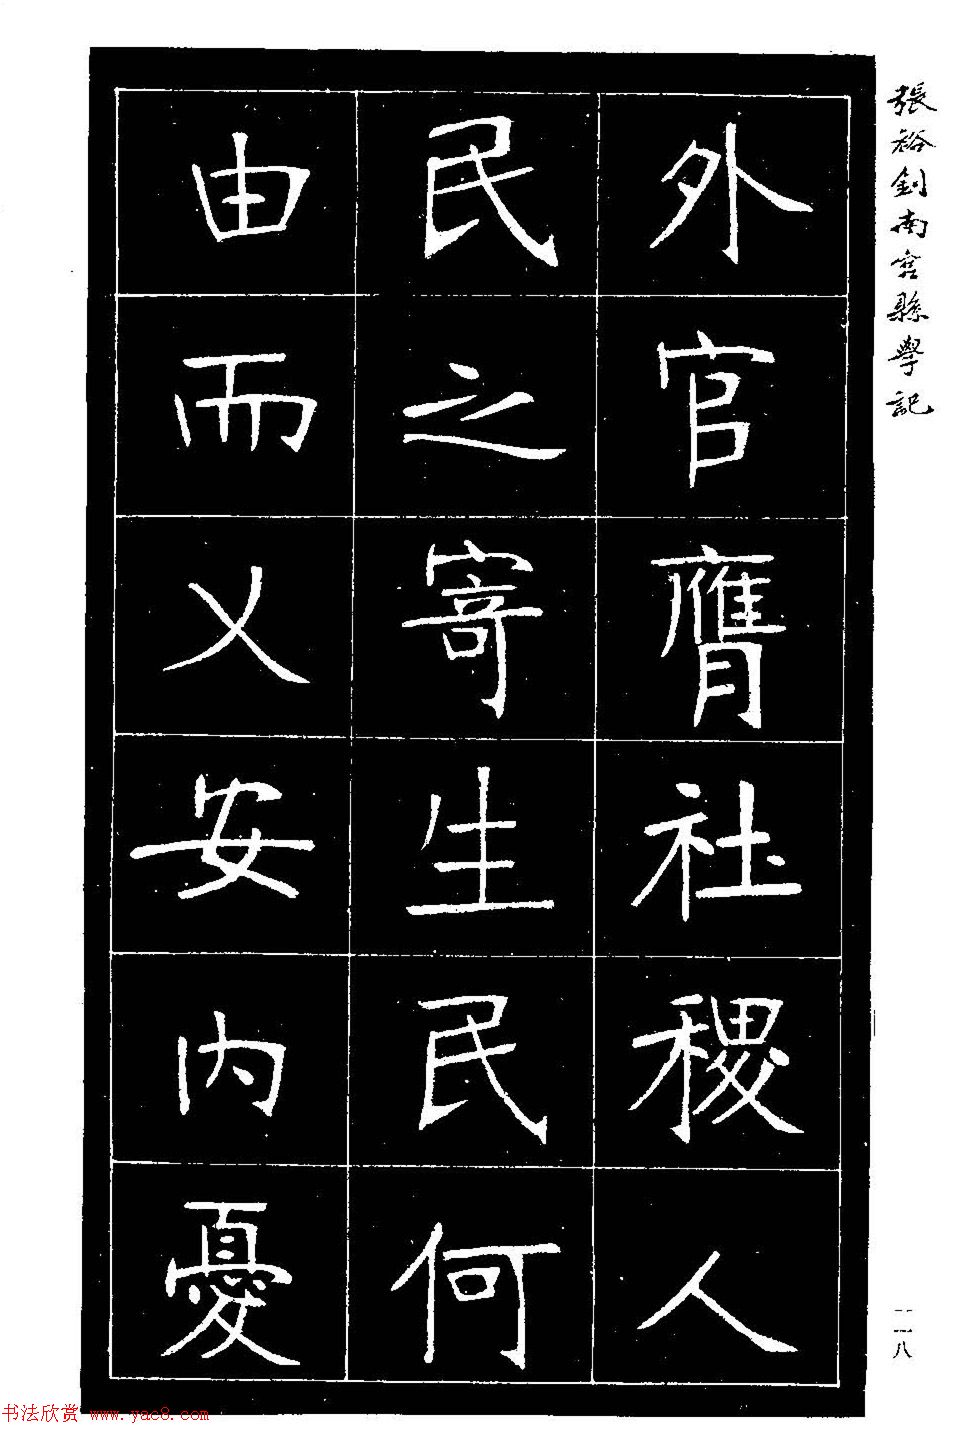 張裕釗南宮縣學記
外官膺社稷人
民之寄生民何
由而乂安內憂
二八
书法欣赏 www.yac8.com